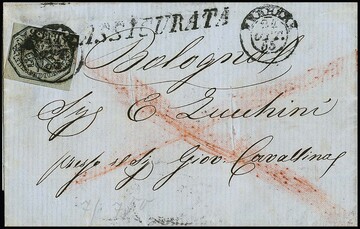 ASSICURATA
Bologna
Sig E. Zucchini
presso il Sig Giov. Cavallina